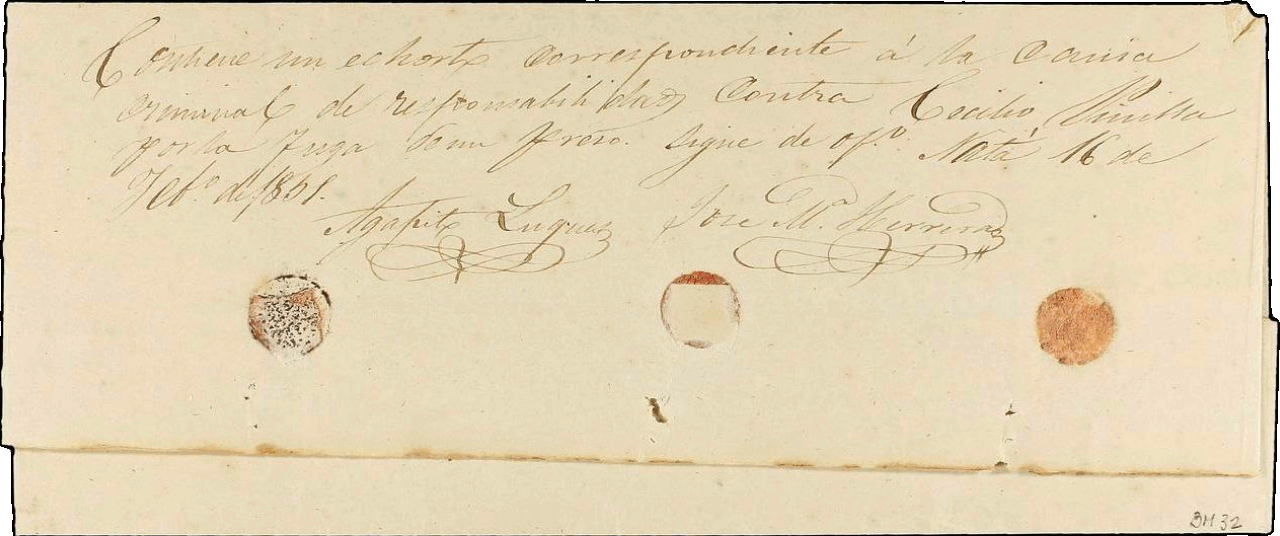 Contiene un echorto correspondiente á la causa
criminal de responsabilidad contra Cecilio Pinilla
por la fuga de un preso. Sigue de ofº. Natá 16 de
Febº de 1851.
Agapito Luque José Mª. Herrera
BH 32